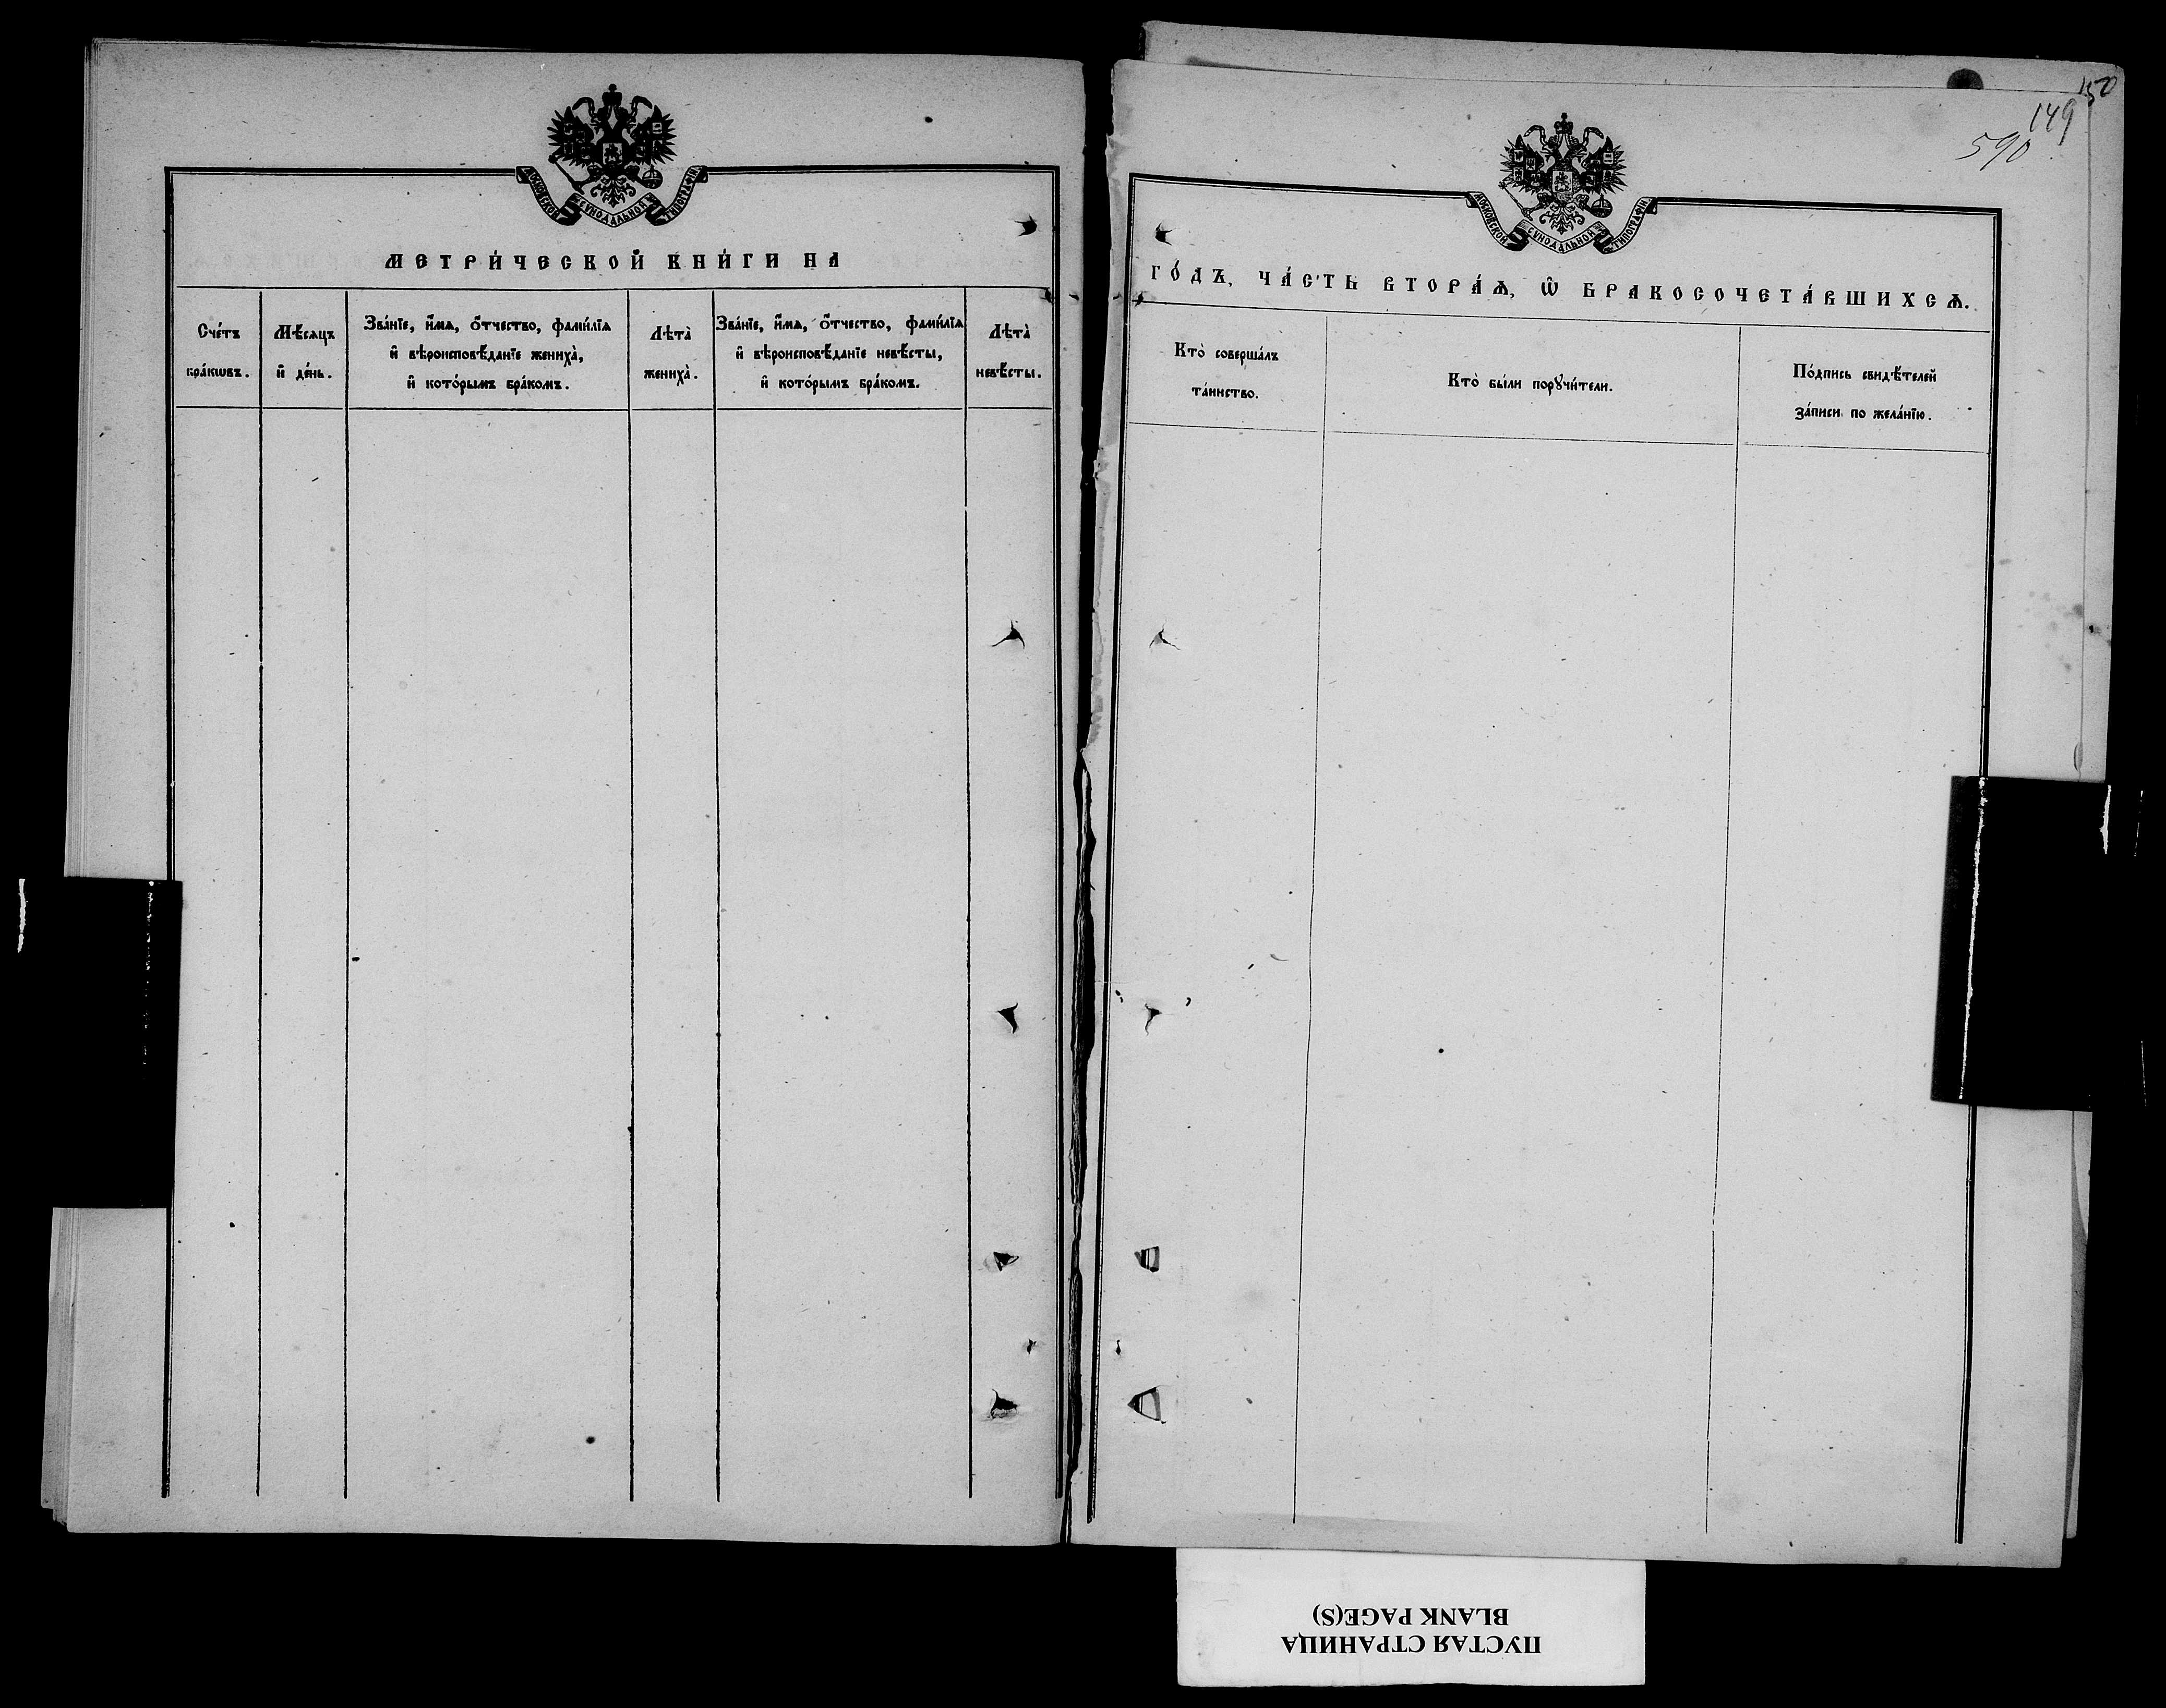 МОСКОВСКОЙ СѴНОДАЛЬНОЙ ТИПОГРАФІИ
МЕТРИ́ЧЕСКОЙ КНИ́ГИ НА
Сче́тъ
бра́кѡвъ.
Мѣ́сѧцъ
и҆ де́нь.
Зва́нїе, и҆́мѧ, ѻ҆́тчество, фамі́лїѧ
и҆ вѣроисповѣ́данїе жениха̀,
и҆ кото́рымъ бра́комъ.
Лѣта̀
жениха̀.
Зва́нїе, и҆́мѧ, ѻ҆́тчество, фамі́лїѧ
и҆ вѣроисповѣ́данїе невѣ́сты,
и҆ кото́рымъ бра́комъ.
Лѣта̀
невѣ́сты.
150
149
590
МОСКОВСКОЙ СѴНОДАЛЬНОЙ ТИПОГРАФІИ
ГО́ДЪ, ЧА́СТЬ ВТОРА́Ѧ, Ѡ҆ БРАКОСОЧЕТА́ВШИХСѦ.
Кто̀ соверша́лъ
та́инство.
Кто̀ бы́ли порꙋчи́тели.
По́дпись свидѣ́телей
за́писи по жела́нїю.
ПУСТАЯ СТРАНИЦА
BLANK PAGE(S)